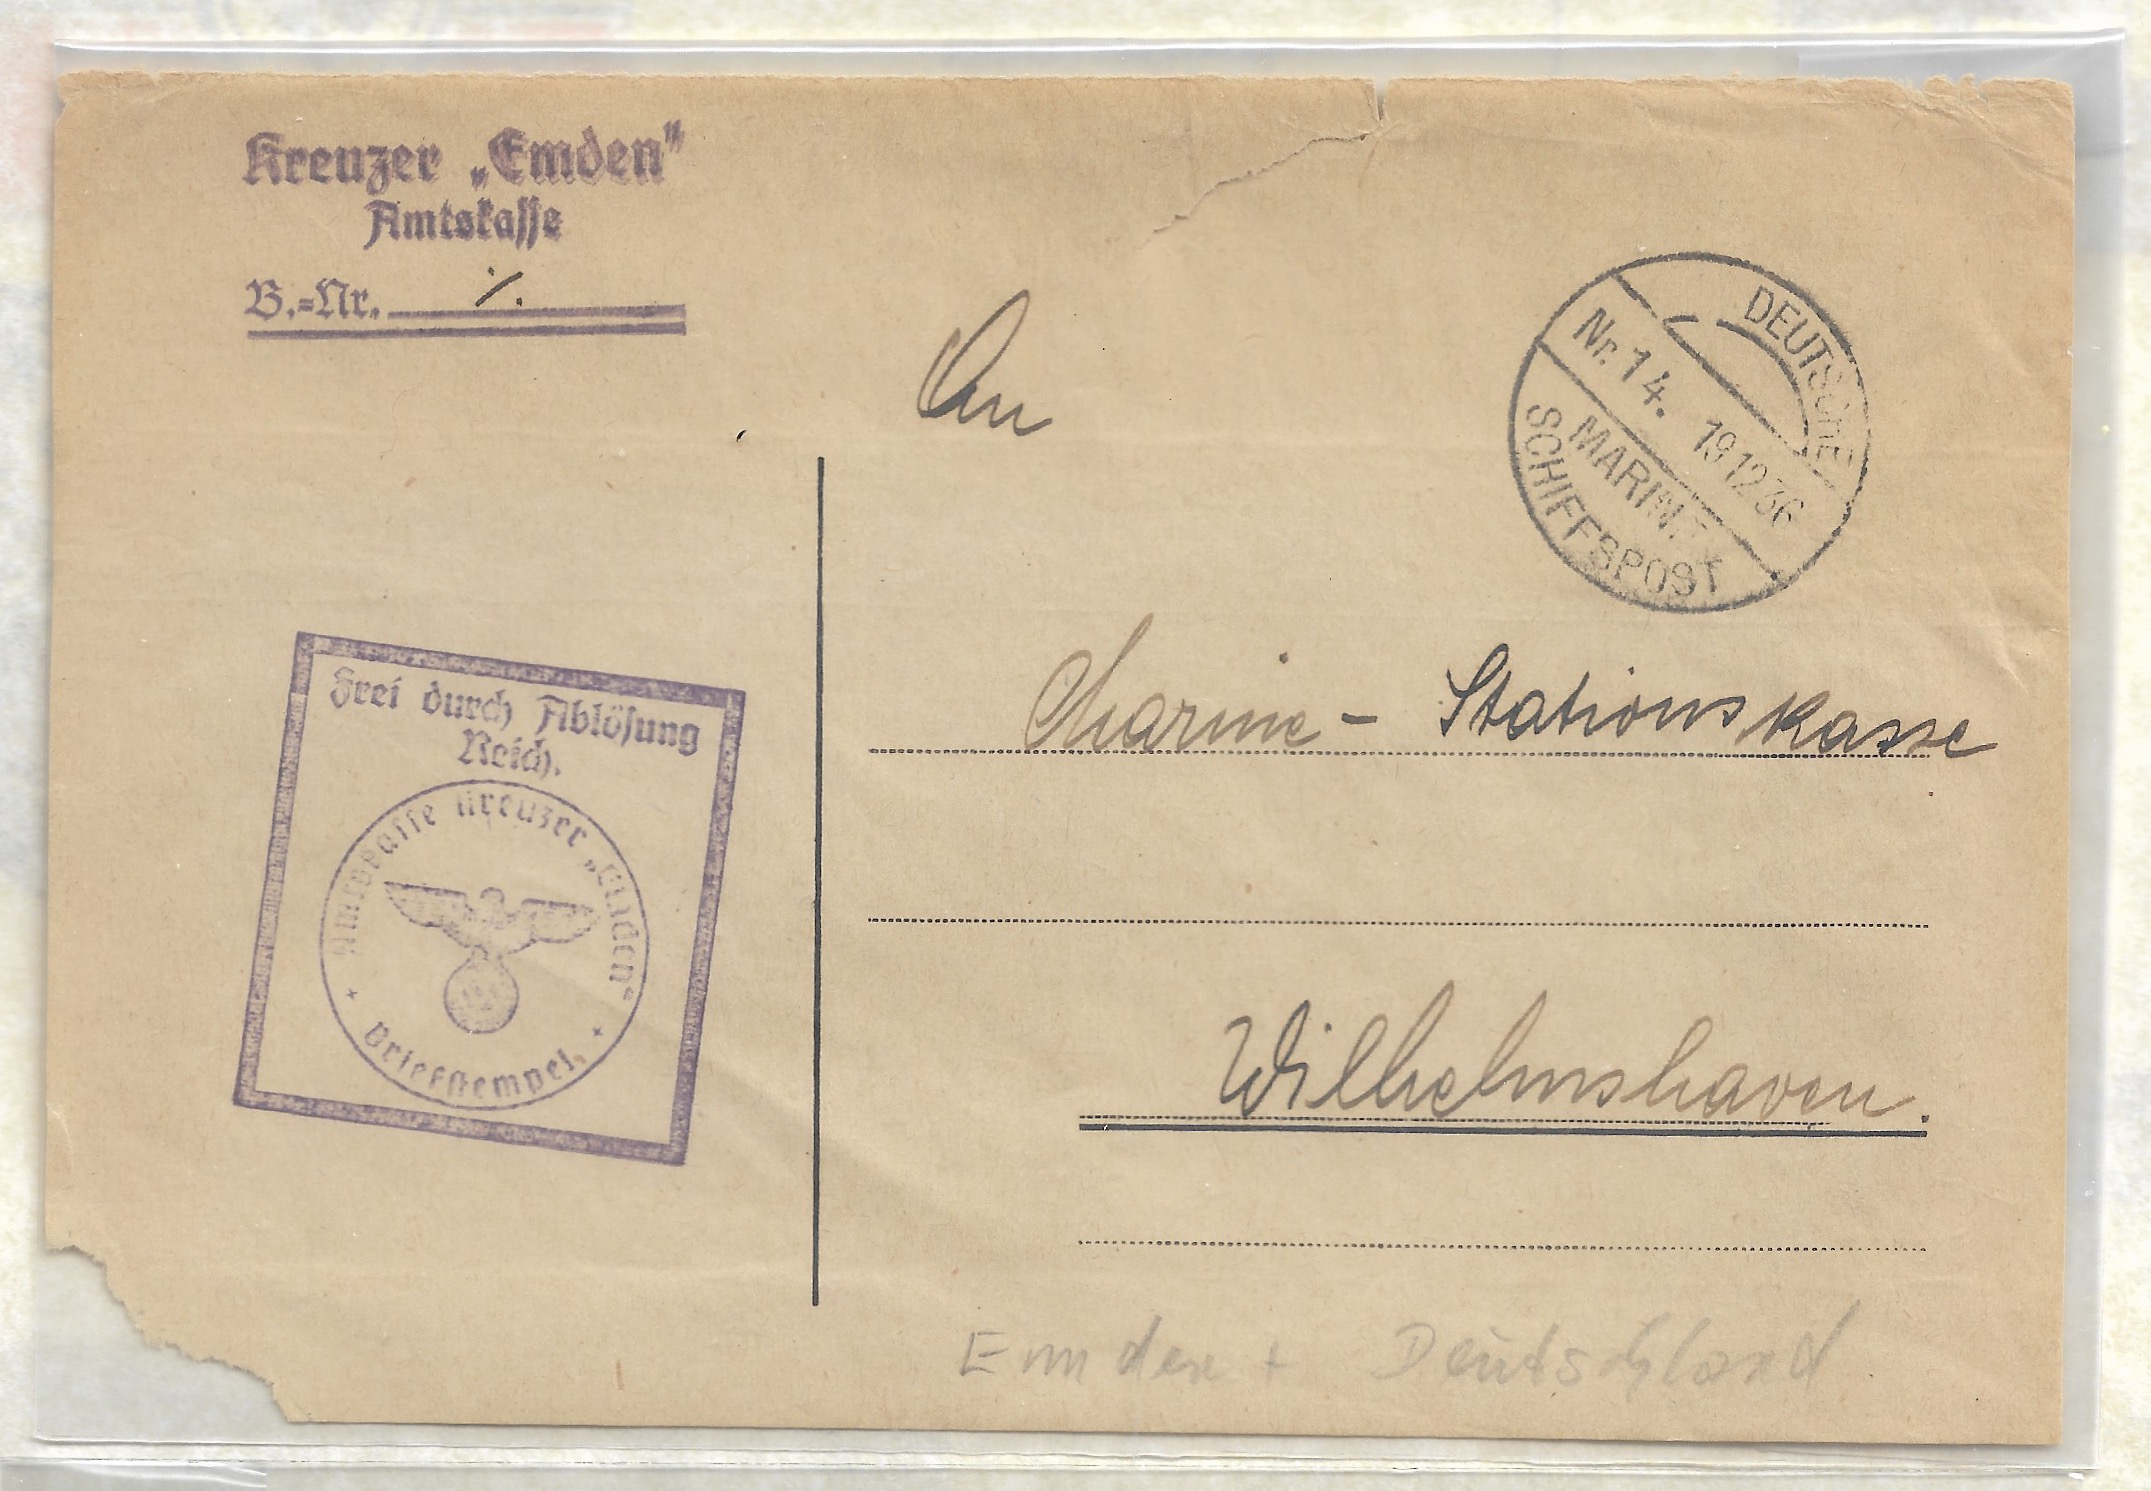 Kreuzer „Emden"
Amtskasse
B.=Nr. ⁒
An
DEUTSCHE
Nr. 14. 19 12 36
MARINE
SCHIFFSPOST
Marine - Stationskasse
Frei durch Ablösung
Reich.
Amtskasse Kreuzer „Emden"
Briefstempel.
Wilhelmshaven.
Emden + Deutschland